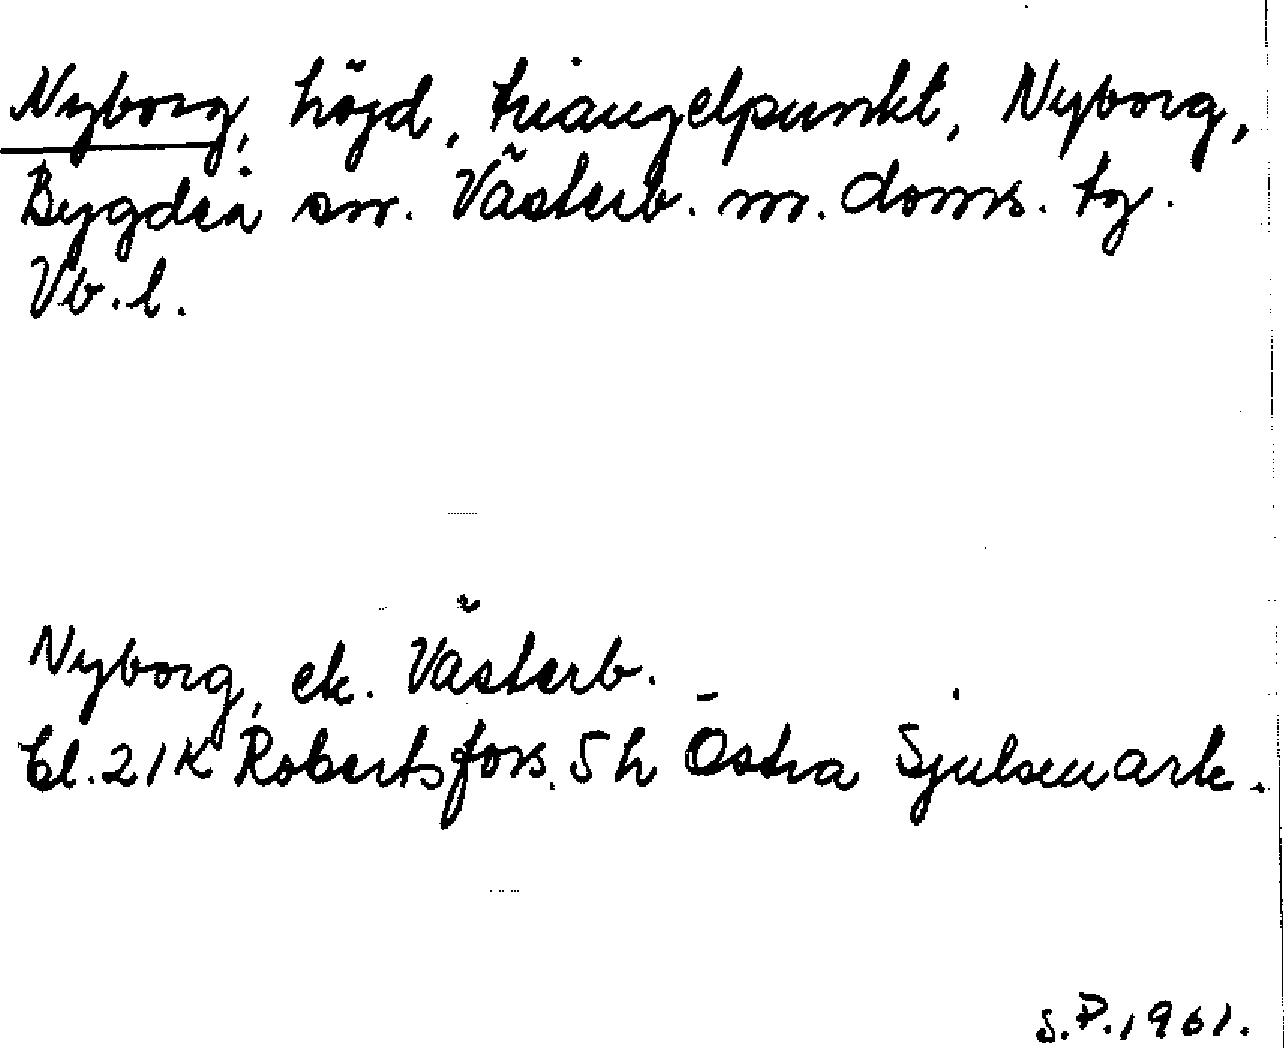 Nyborg, höjd, triangelpunkt, Nyborg,
Bygdeå sn. Västerb. m. doms. tg.
Vb. l.
Nyborg, ek. Västerb.
bl. 21K Robertsfors. 5h Östra Sjulsmark.
S.P. 1961.